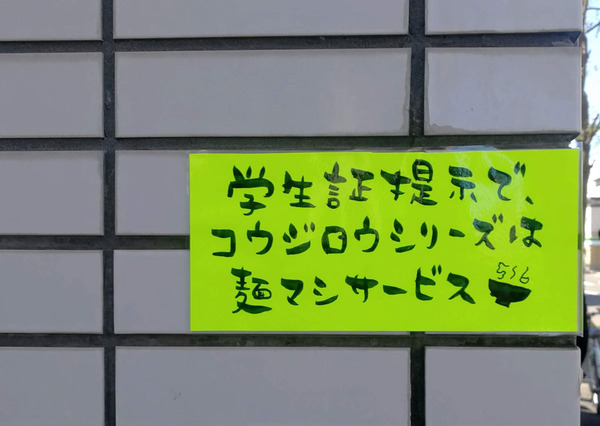 学生証提示で、
コウジロウシリーズは
麺マシサービス